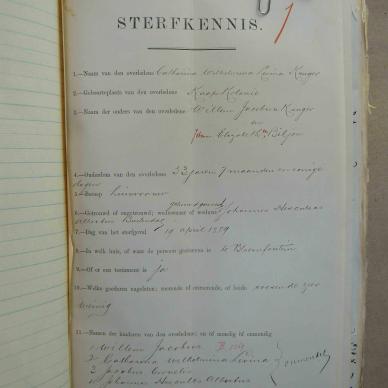 STERFKENNIS.
1.—Naam van den overledene Catharina Wilhelmina Levina Kruger
2.—Geboorteplaats van den overledene Kaap Kolonie
3.—Naam der ouders van den overledene Willem Jacobus Kruger
en
Elizabeth Biljon
4.—Ouderdom van den overledene 33 jaren 7 maanden en eenige
dagen
5.—Beroep huisvrouw
6.—Getrouwd of ongetrouwd; weduwnaar of weduwe Johannes
7.—Dag van het sterfgeval 19 April 1889
8.—In welk huis, of waar de persoon gestorven is te Bloemfontein
9.—Of er een testament is ja
10.—Welke goederen nagelaten; roerende of onroerende, of beide roerende zeer
weinig
11.—Namen der kinderen van den overledene; en of mondig of onmondig
1 Willem Jacobus
2 Catharina Wilhelmina Levina
3 Jacobus Cornelis
onmondig
4 Johannes Albertus